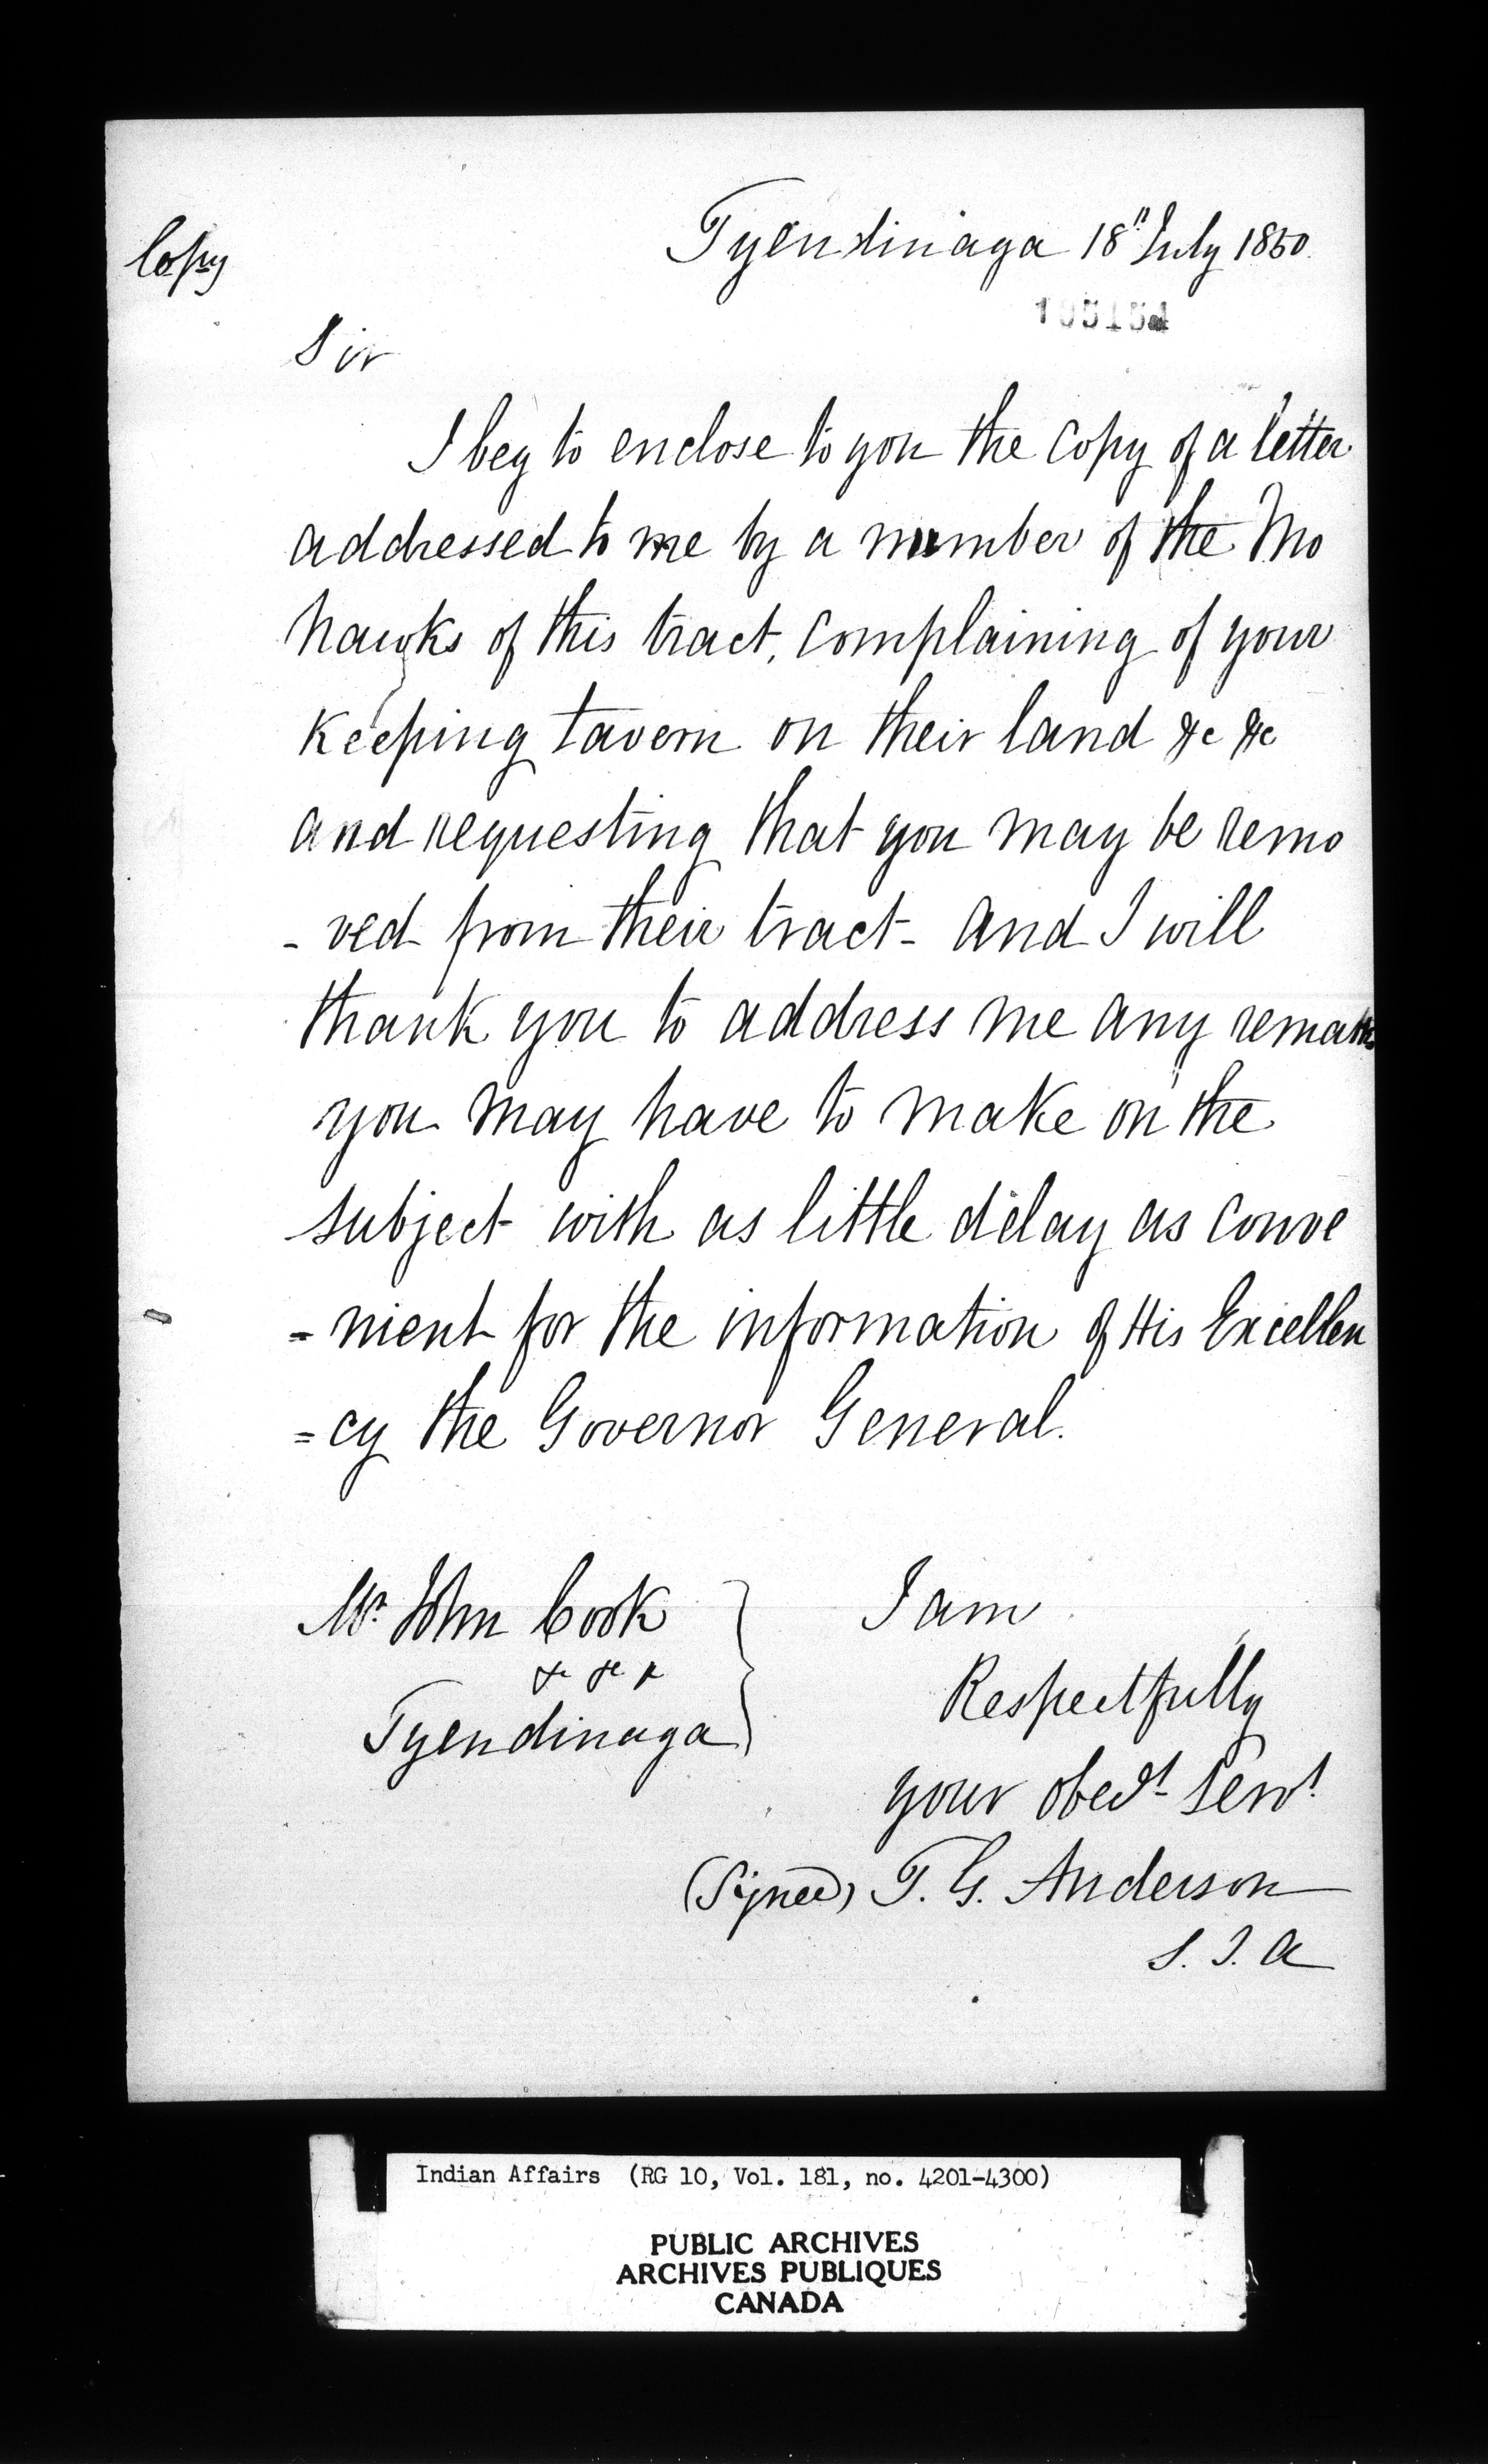 Copy
Tyendinaga 18th July 1850.
Sir
I beg to enclose to you the Copy of a letter
addressed to me by a number of the Mo
hawks of this tract, complaining of your
keeping tavern on their land &c &c
and requesting that you may be remo
- ved from their tract - and I will
thank you to address me any remarks
you may have to make on the
subject with as little delay as conve
= nient for the information of His Excellen
= cy the Governor General.
Mr. John Cook
&c &c &
Tyendinaga
I am
Respectfully
your obedt. Servt.
(Signed) T. G. Anderson
S. I. A
Indian Affairs (RG 10, Vol. 181, no. 4201-4300)
PUBLIC ARCHIVES
ARCHIVES PUBLIQUES
CANADA